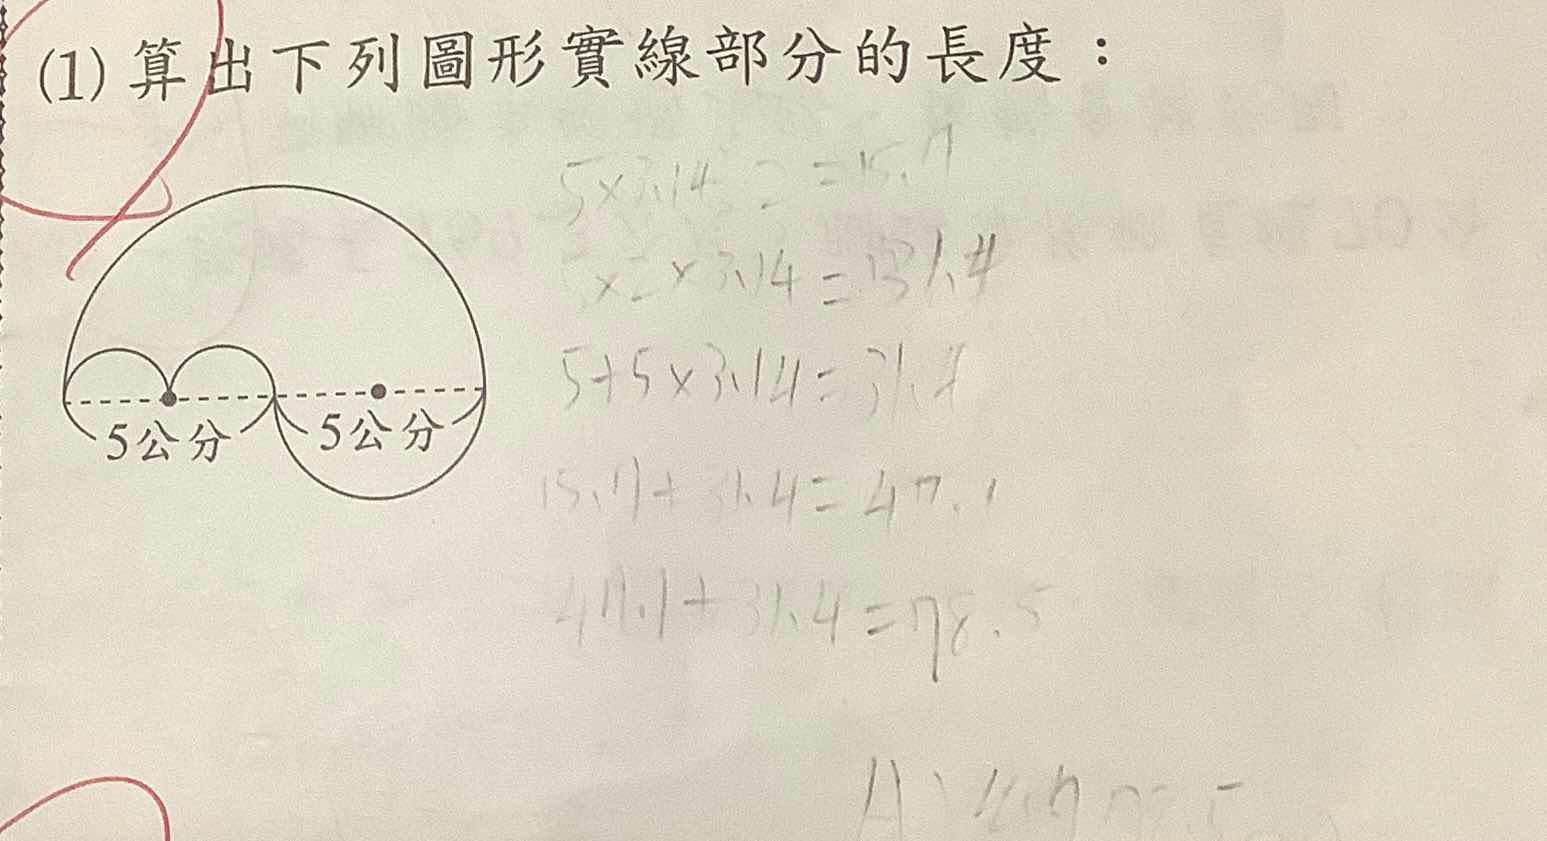 (1) 算出下列圖形實線部分的長度：
5×3.14 2 = 15.7
5×2×3.14 = 31.4
5+5×3.14 = 31.4
15.7+31.4 = 47.1
47.1+31.4 = 78.5
5公分 5公分
A: